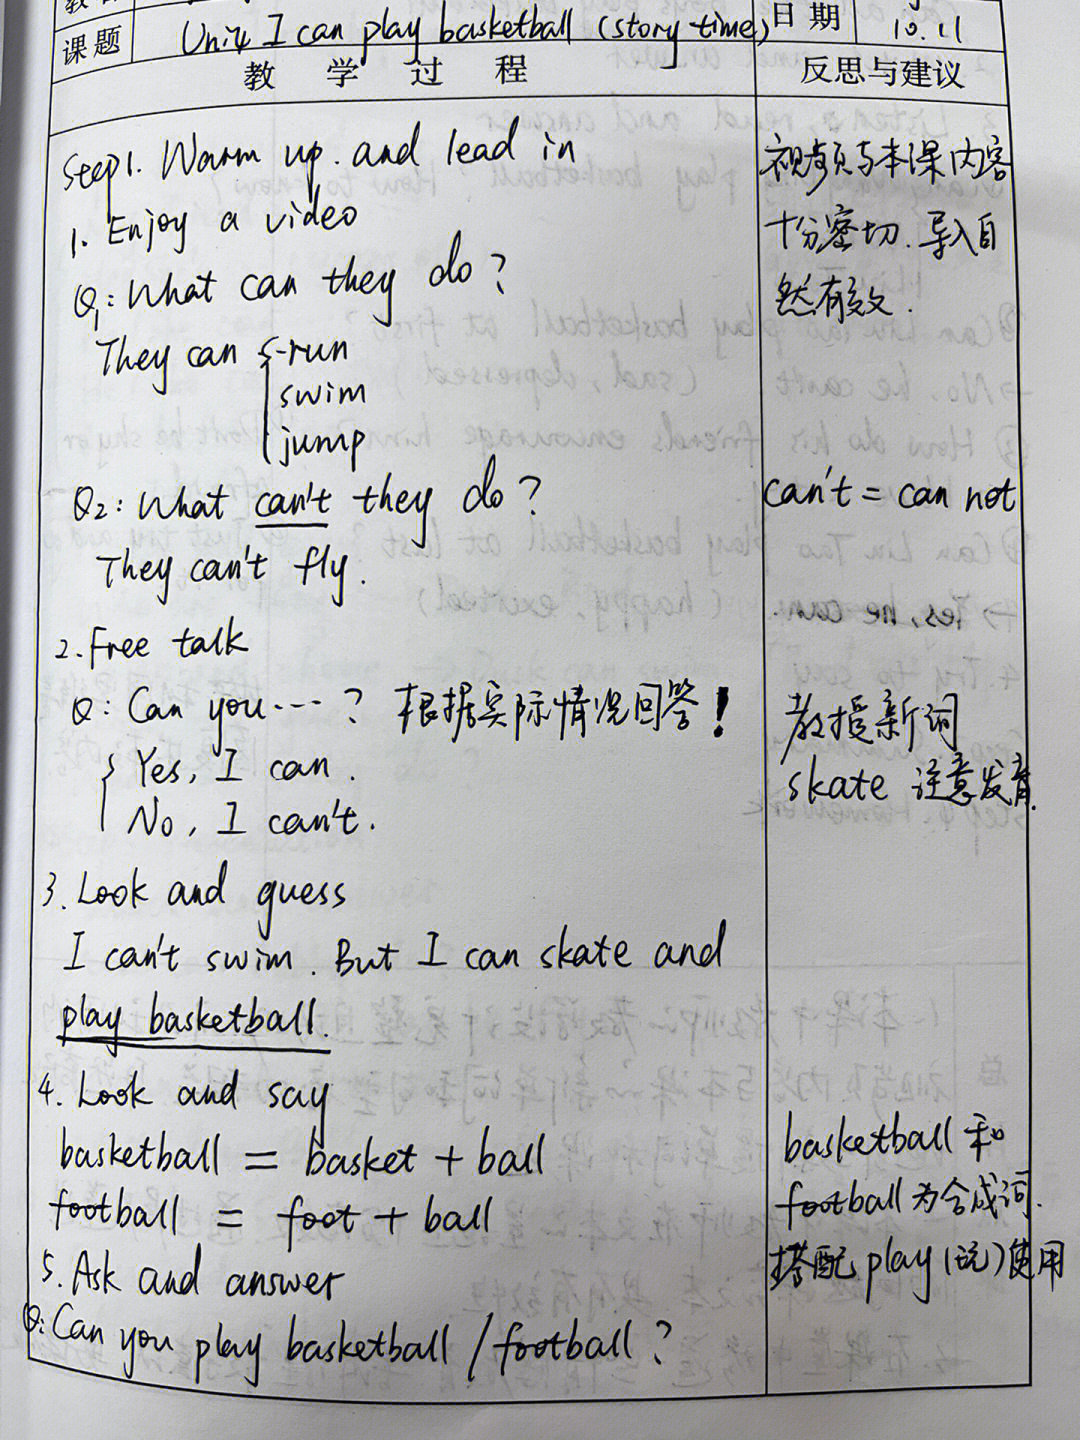 课题 Unit4 I can play basketball (story time) 日期 10.11
教 学 过 程 反思与建议
Step1. Warm up. and lead in
1. Enjoy a video
Q1: What can they do?
They can { run
swim
jump
Q2: What can't they do?
They can't fly.
2. Free talk
Q: Can you…? 根据实际情况回答!
{ Yes, I can.
No, I can't.
3. Look and guess
I can't swim. But I can skate and
play basketball.
4. Look and say
basketball = basket + ball
football = foot + ball
5. Ask and answer
Q: Can you play basketball / football?
视频与本课内容
十分密切. 导入自
然有效.
can't = can not
教授新词
skate 注意发音.
basketball 和
football 为合成词.
搭配 play (玩) 使用